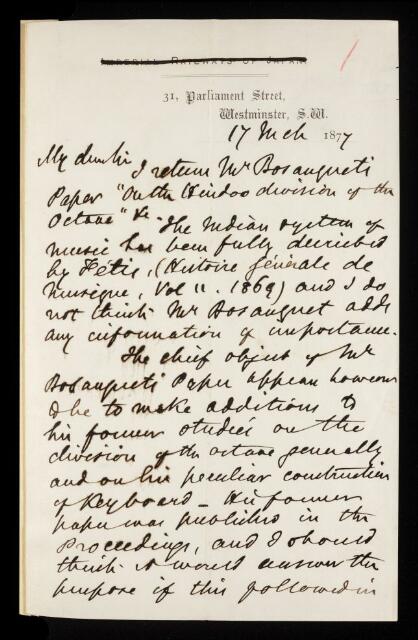 IMPERIAL RAILWAYS OF JAPAN
31, Parliament Street,
Westminster, S.W.
17 Mch 1877
My dear Sir
I return Mr Bosanquet's
Paper "On the Hindoo division of the
Octave" &c - The Indian system of
music has been fully described
by Fétis, (Histoire Générale de
Musique, Vol 11. 1869) and I do
not think Mr Bosanquet adds
any information of importance.
The chief object of Mr
Bosanquet's Paper appears however
to be to make additions to
his former studies on the
division of the octave generally
and on his peculiar construction
of Keyboard - His former
paper was published in the
Proceedings, and I should
think it would answer the
purpose if this followed in